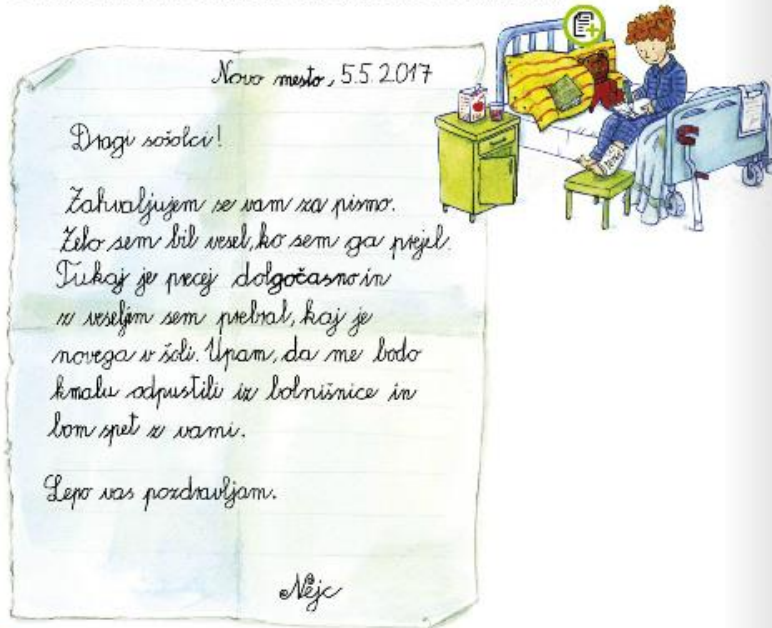 Novo mesto, 5.5.2017
Dragi sošolci!
Zahvaljujem se vam za pismo.
Zelo sem bil vesel, ko sem ga prejel.
Tukaj je precej dolgočasno in
z veseljem sem prebral, kaj je
novega v šoli. Upam, da me bodo
kmalu odpustili iz bolnišnice in
bom spet z vami.
Lepo vas pozdravljam.
Nejc